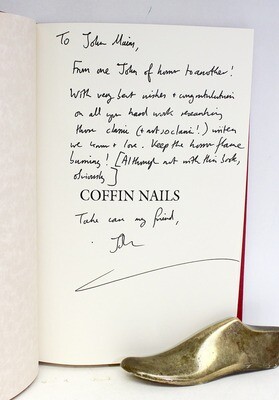 To John Mains,
From one John of horror to another!
With very best wishes + congratulations
on all your hard work researching
those classic (+ not so classic!) writers
we know + love. Keep the horror flame
burning! [Although not with this book,
obviously]
COFFIN NAILS
Take care my friend,
John